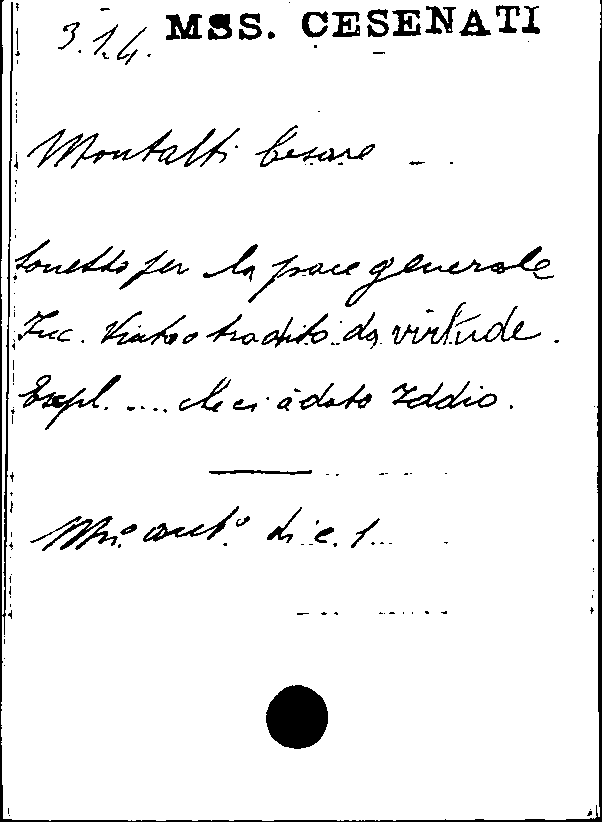 3.1.4. MSS. CESENATI
Montalti Cesare
Sonetto per la pace generale
Inc. Vinto o tradito da virtude.
Expl. .... che ci à dato Iddio.
Ms.º aut.º di c. 1